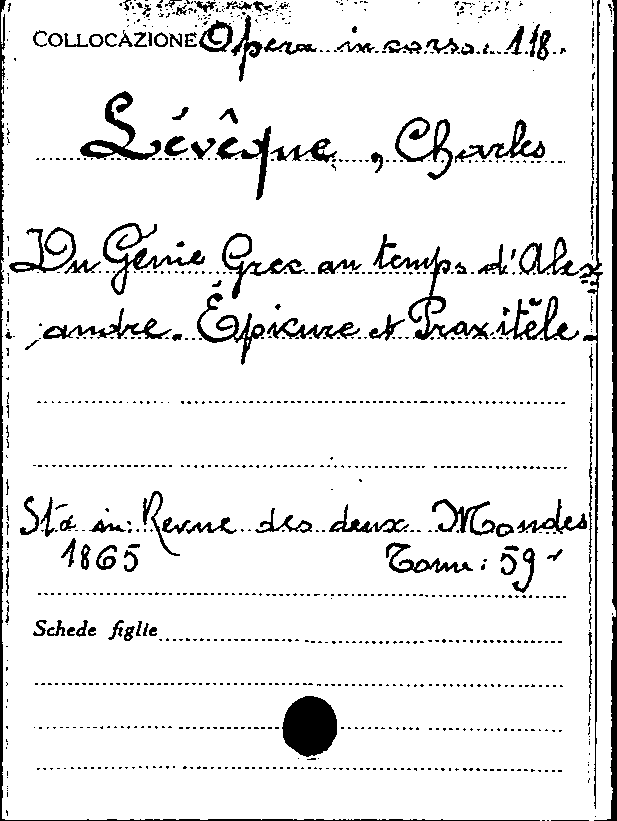 COLLOCAZIONE Opera in corso. 118.
Lévêque, Charles
Du Génie Grec au temps d'Alex=
andre. Épicure et Praxitèle -
Sta in: Revue des deux Mondes
1865 Tome: 59
Schede figlie